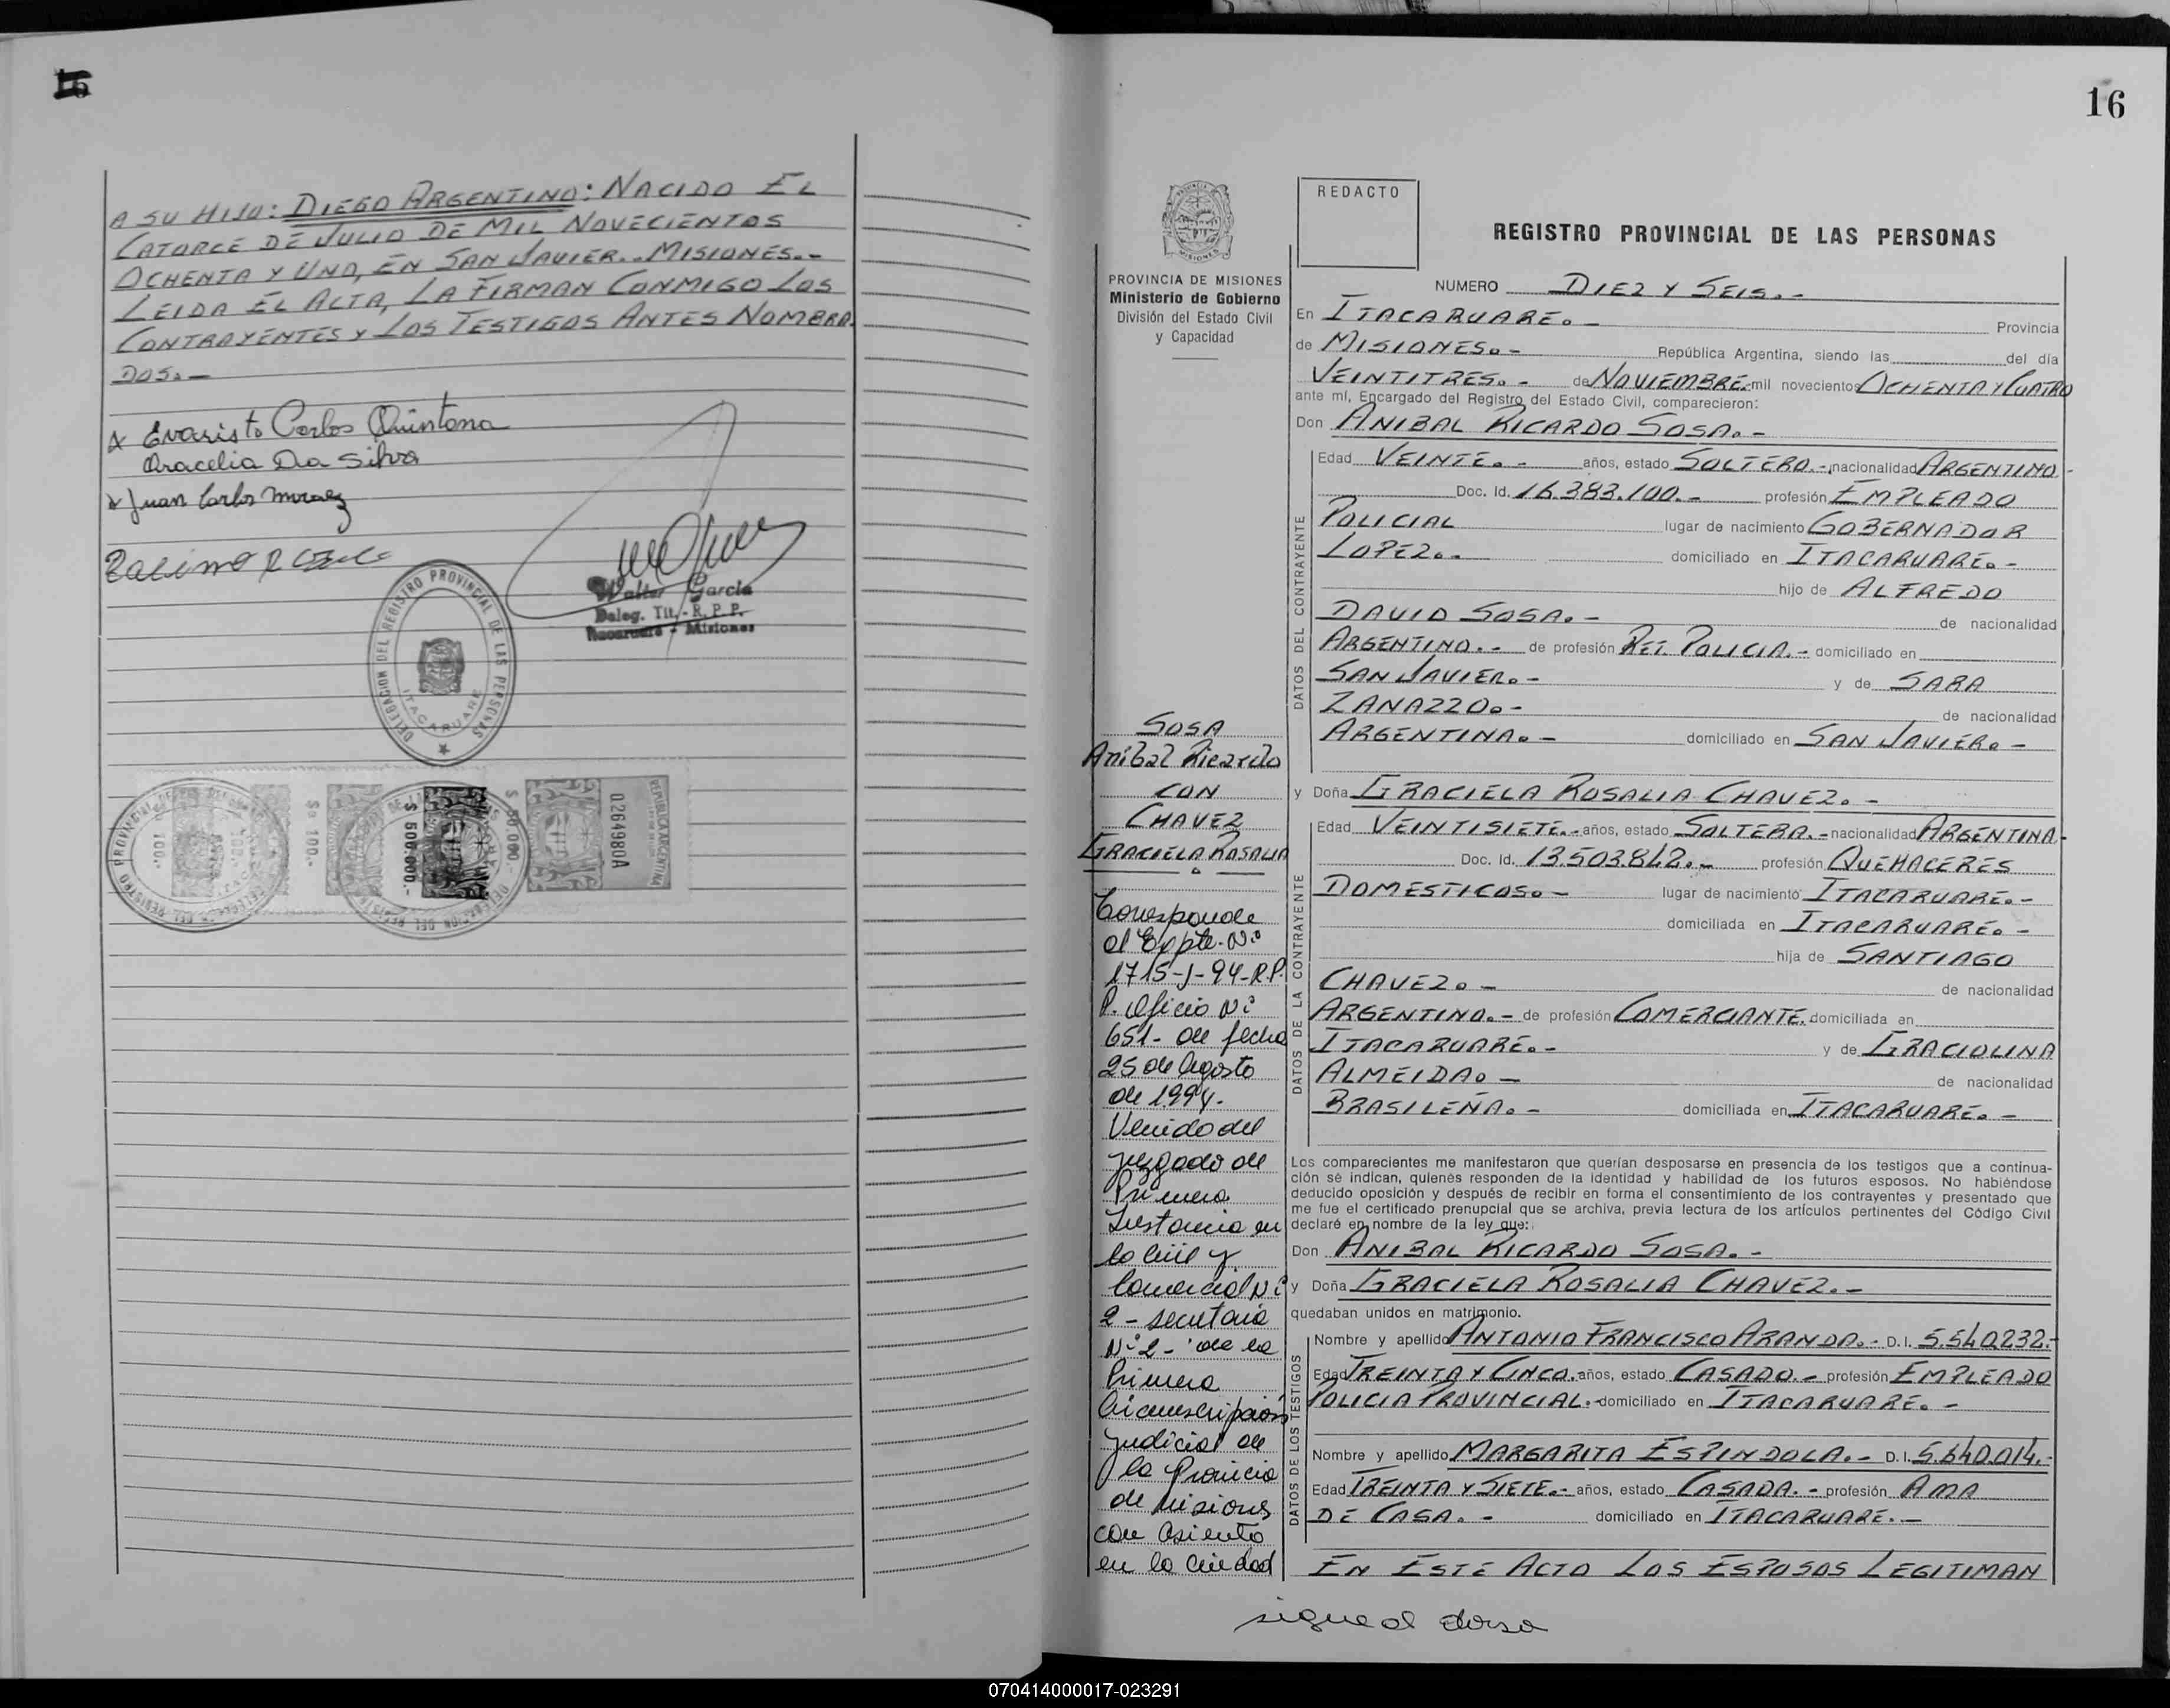 15
A SU HIJO: DIEGO ARGENTINO: NACIDO EL
CATORCE DE JULIO DE MIL NOVECIENTOS
OCHENTA Y UNO, EN SAN JAVIER.. MISIONES.-
LEIDA EL ACTA, LA FIRMAN CONMIGO LOS
CONTRAYENTES Y LOS TESTIGOS ANTES NOMBRA
DOS.-
x Evaristo Carlos Quintana
Aracelia Da Silva
x Juan Carlos
Walter Garcia
Deleg. Tit. - R. P. P.
Itacaruaré - Misiones
DELEGACION DEL REGISTRO PROVINCIAL DE LAS PERSONAS
ITACARUARE
$ 100.-
$ 500.000.-
REPUBLICA ARGENTINA
0.264980A
16
PROVINCIA DE MISIONES
Ministerio de Gobierno
División del Estado Civil
y Capacidad
REDACTO
REGISTRO PROVINCIAL DE LAS PERSONAS
NUMERO DIEZ Y SEIS.-
En ITACARUARE.- Provincia
de MISIONES.- República Argentina, siendo las del día
VEINTITRES.- de NOVIEMBRE mil novecientos OCHENTA Y CUATRO
ante mí, Encargado del Registro del Estado Civil, comparecieron:
Don ANIBAL RICARDO SOSA.-
DATOS DEL CONTRAYENTE
Edad VEINTE.- años, estado SOLTERO.- nacionalidad ARGENTINO.-
Doc. Id. 16.383.100.- profesión EMPLEADO
POLICIAL lugar de nacimiento GOBERNADOR
LOPEZ.- domiciliado en ITACARUARE.-
hijo de ALFREDO
DAVID SOSA.- de nacionalidad
ARGENTINO.- de profesión RET. POLICIA.- domiciliado en
SAN JAVIER.- y de SARA
ZANAZZO.- de nacionalidad
ARGENTINA.- domiciliado en SAN JAVIER.-
y Doña GRACIELA ROSALIA CHAVEZ.-
DATOS DE LA CONTRAYENTE
Edad VEINTISIETE.- años, estado SOLTERA.- nacionalidad ARGENTINA.-
Doc. Id. 13.503.842.- profesión QUEHACERES
DOMESTICOS.- lugar de nacimiento ITACARUARE.-
domiciliada en ITACARUARE.-
hija de SANTIAGO
CHAVEZ.- de nacionalidad
ARGENTINO.- de profesión COMERCIANTE. domiciliada en
ITACARUARE.- y de GRACIOLINA
ALMEIDA.- de nacionalidad
BRASILEÑA.- domiciliada en ITACARUARE.-
Los comparecientes me manifestaron que querían desposarse en presencia de los testigos que a continua-
ción se indican, quienes responden de la identidad y habilidad de los futuros esposos. No habiéndose
deducido oposición y después de recibir en forma el consentimiento de los contrayentes y presentado que
me fue el certificado prenupcial que se archiva, previa lectura de los artículos pertinentes del Código Civil
declaré en nombre de la ley que:
Don ANIBAL RICARDO SOSA.-
y Doña GRACIELA ROSALIA CHAVEZ.-
quedaban unidos en matrimonio.
DATOS DE LOS TESTIGOS
Nombre y apellido ANTONIO FRANCISCO ARANDA.- D.I. 5.540.232.-
Edad TREINTA Y CINCO. años, estado CASADO.- profesión EMPLEADO
POLICIA PROVINCIAL.- domiciliado en ITACARUARE.-
Nombre y apellido MARGARITA ESPINDOLA.- D.I. 5.640.014.-
Edad TREINTA Y SIETE.- años, estado CASADA.- profesión AMA
DE CASA.- domiciliado en ITACARUARE.-
EN ESTE ACTO LOS ESPOSOS LEGITIMAN
sigue al dorso
SOSA
Anibal Ricardo
CON
CHAVEZ
GRACIELA ROSALIA
Corresponde
al Expte. N.º
1715-J-94-R.P.
P. Oficio Nº
651- de fecha
25 de Agosto
de 1994.
Venido del
Juzgado de
Primera
Instancia en
lo Civil y
Comercial Nº
2 - secretaria
Nº 2 - de la
Primera
Circunscripción
Judicial de
la Provincia
de Misiones
con asiento
en la Ciudad
070414000017-023291